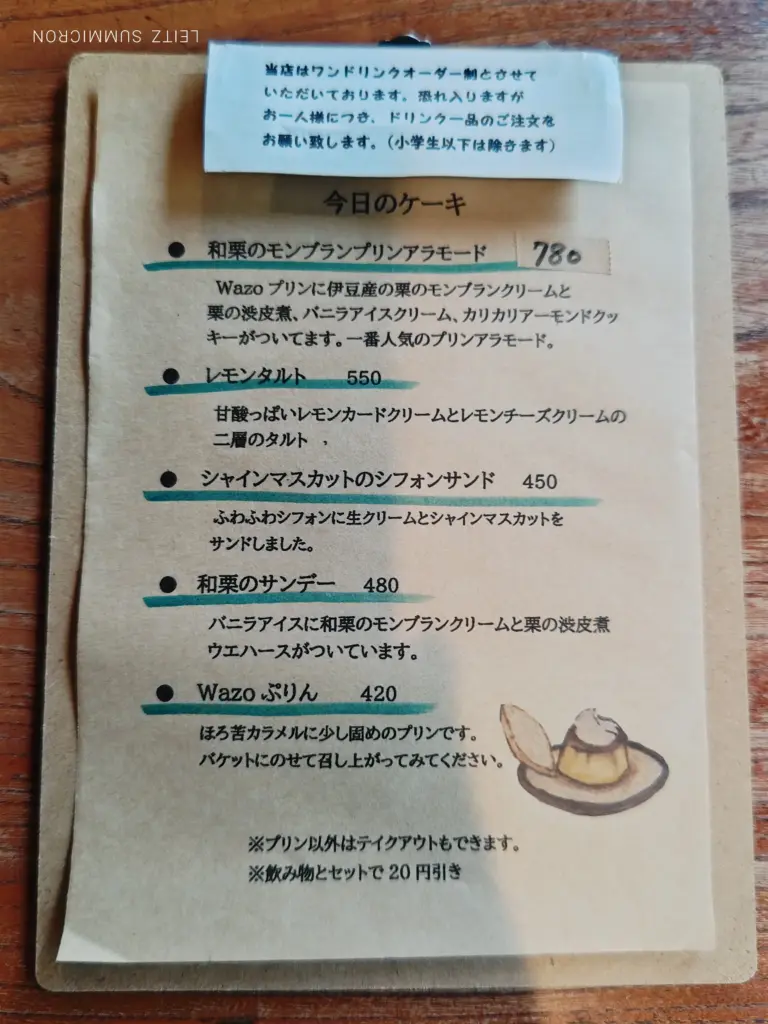 LEITZ SUMMICRON
当店はワンドリンクオーダー制とさせて
いただいております。恐れ入りますが
お一人様につき、ドリンク一品のご注文を
お願い致します。（小学生以下は除きます）
今日のケーキ
● 和栗のモンブランプリンアラモード 780
Wazo プリンに伊豆産の栗のモンブランクリームと
栗の渋皮煮、バニラアイスクリーム、カリカリアーモンドクッ
キーがついてます。一番人気のプリンアラモード。
● レモンタルト 550
甘酸っぱいレモンカードクリームとレモンチーズクリームの
二層のタルト 、
● シャインマスカットのシフォンサンド 450
ふわふわシフォンに生クリームとシャインマスカットを
サンドしました。
● 和栗のサンデー 480
バニラアイスに和栗のモンブランクリームと栗の渋皮煮
ウエハースがついています。
● Wazo ぷりん 420
ほろ苦カラメルに少し固めのプリンです。
バケットにのせて召し上がってみてください。
※プリン以外はテイクアウトもできます。
※飲み物とセットで 20 円引き